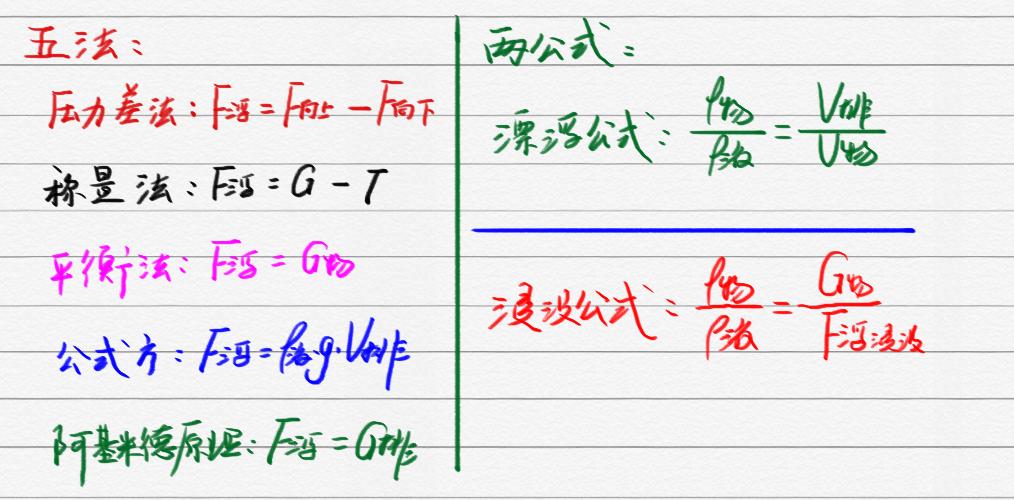 五法：
压力差法：F浮=F向上-F向下
称量法：F浮=G-T
平衡法：F浮=G物
公式方：F浮=ρ液g·V排
阿基米德原理：F浮=G排
两公式：
漂浮公式：ρ物/ρ液=V排/V物
浸没公式：ρ物/ρ液=G物/F浮浸没